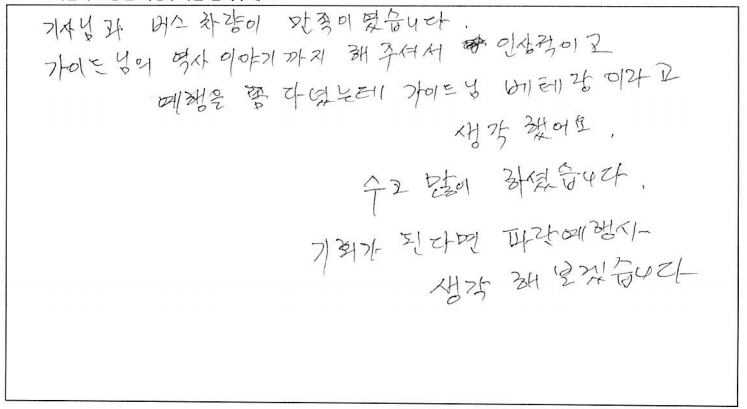 기사님과 버스 차량이 만족이였습니다.
가이드님의 역사 이야기까지 해주셔서 인상적이고
여행을 좀 다녔는데 가이드님 베테랑이라고
생각했어요.
수고 많이 하셨습니다.
기회가 된다면 파란여행사
생각해보겠습니다